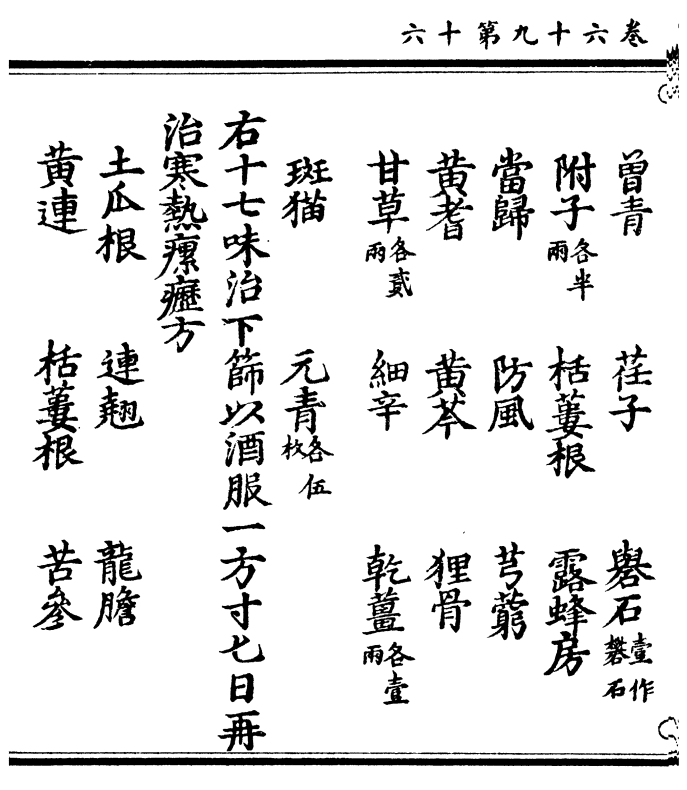 卷六十九第十六
曾青 荏子 礜石壹作礬石
附子各半兩 栝蔞根 露蜂房
當歸 防風 芎藭
黃耆 黃芩 狸骨
甘草各貳兩 細辛 乾薑各壹兩
斑猫 元青各伍枚
右十七味治下篩以酒服一方寸匕日再
治寒熱瘰癧方
土瓜根 連翹 龍膽
黃連 栝蔞根 苦參